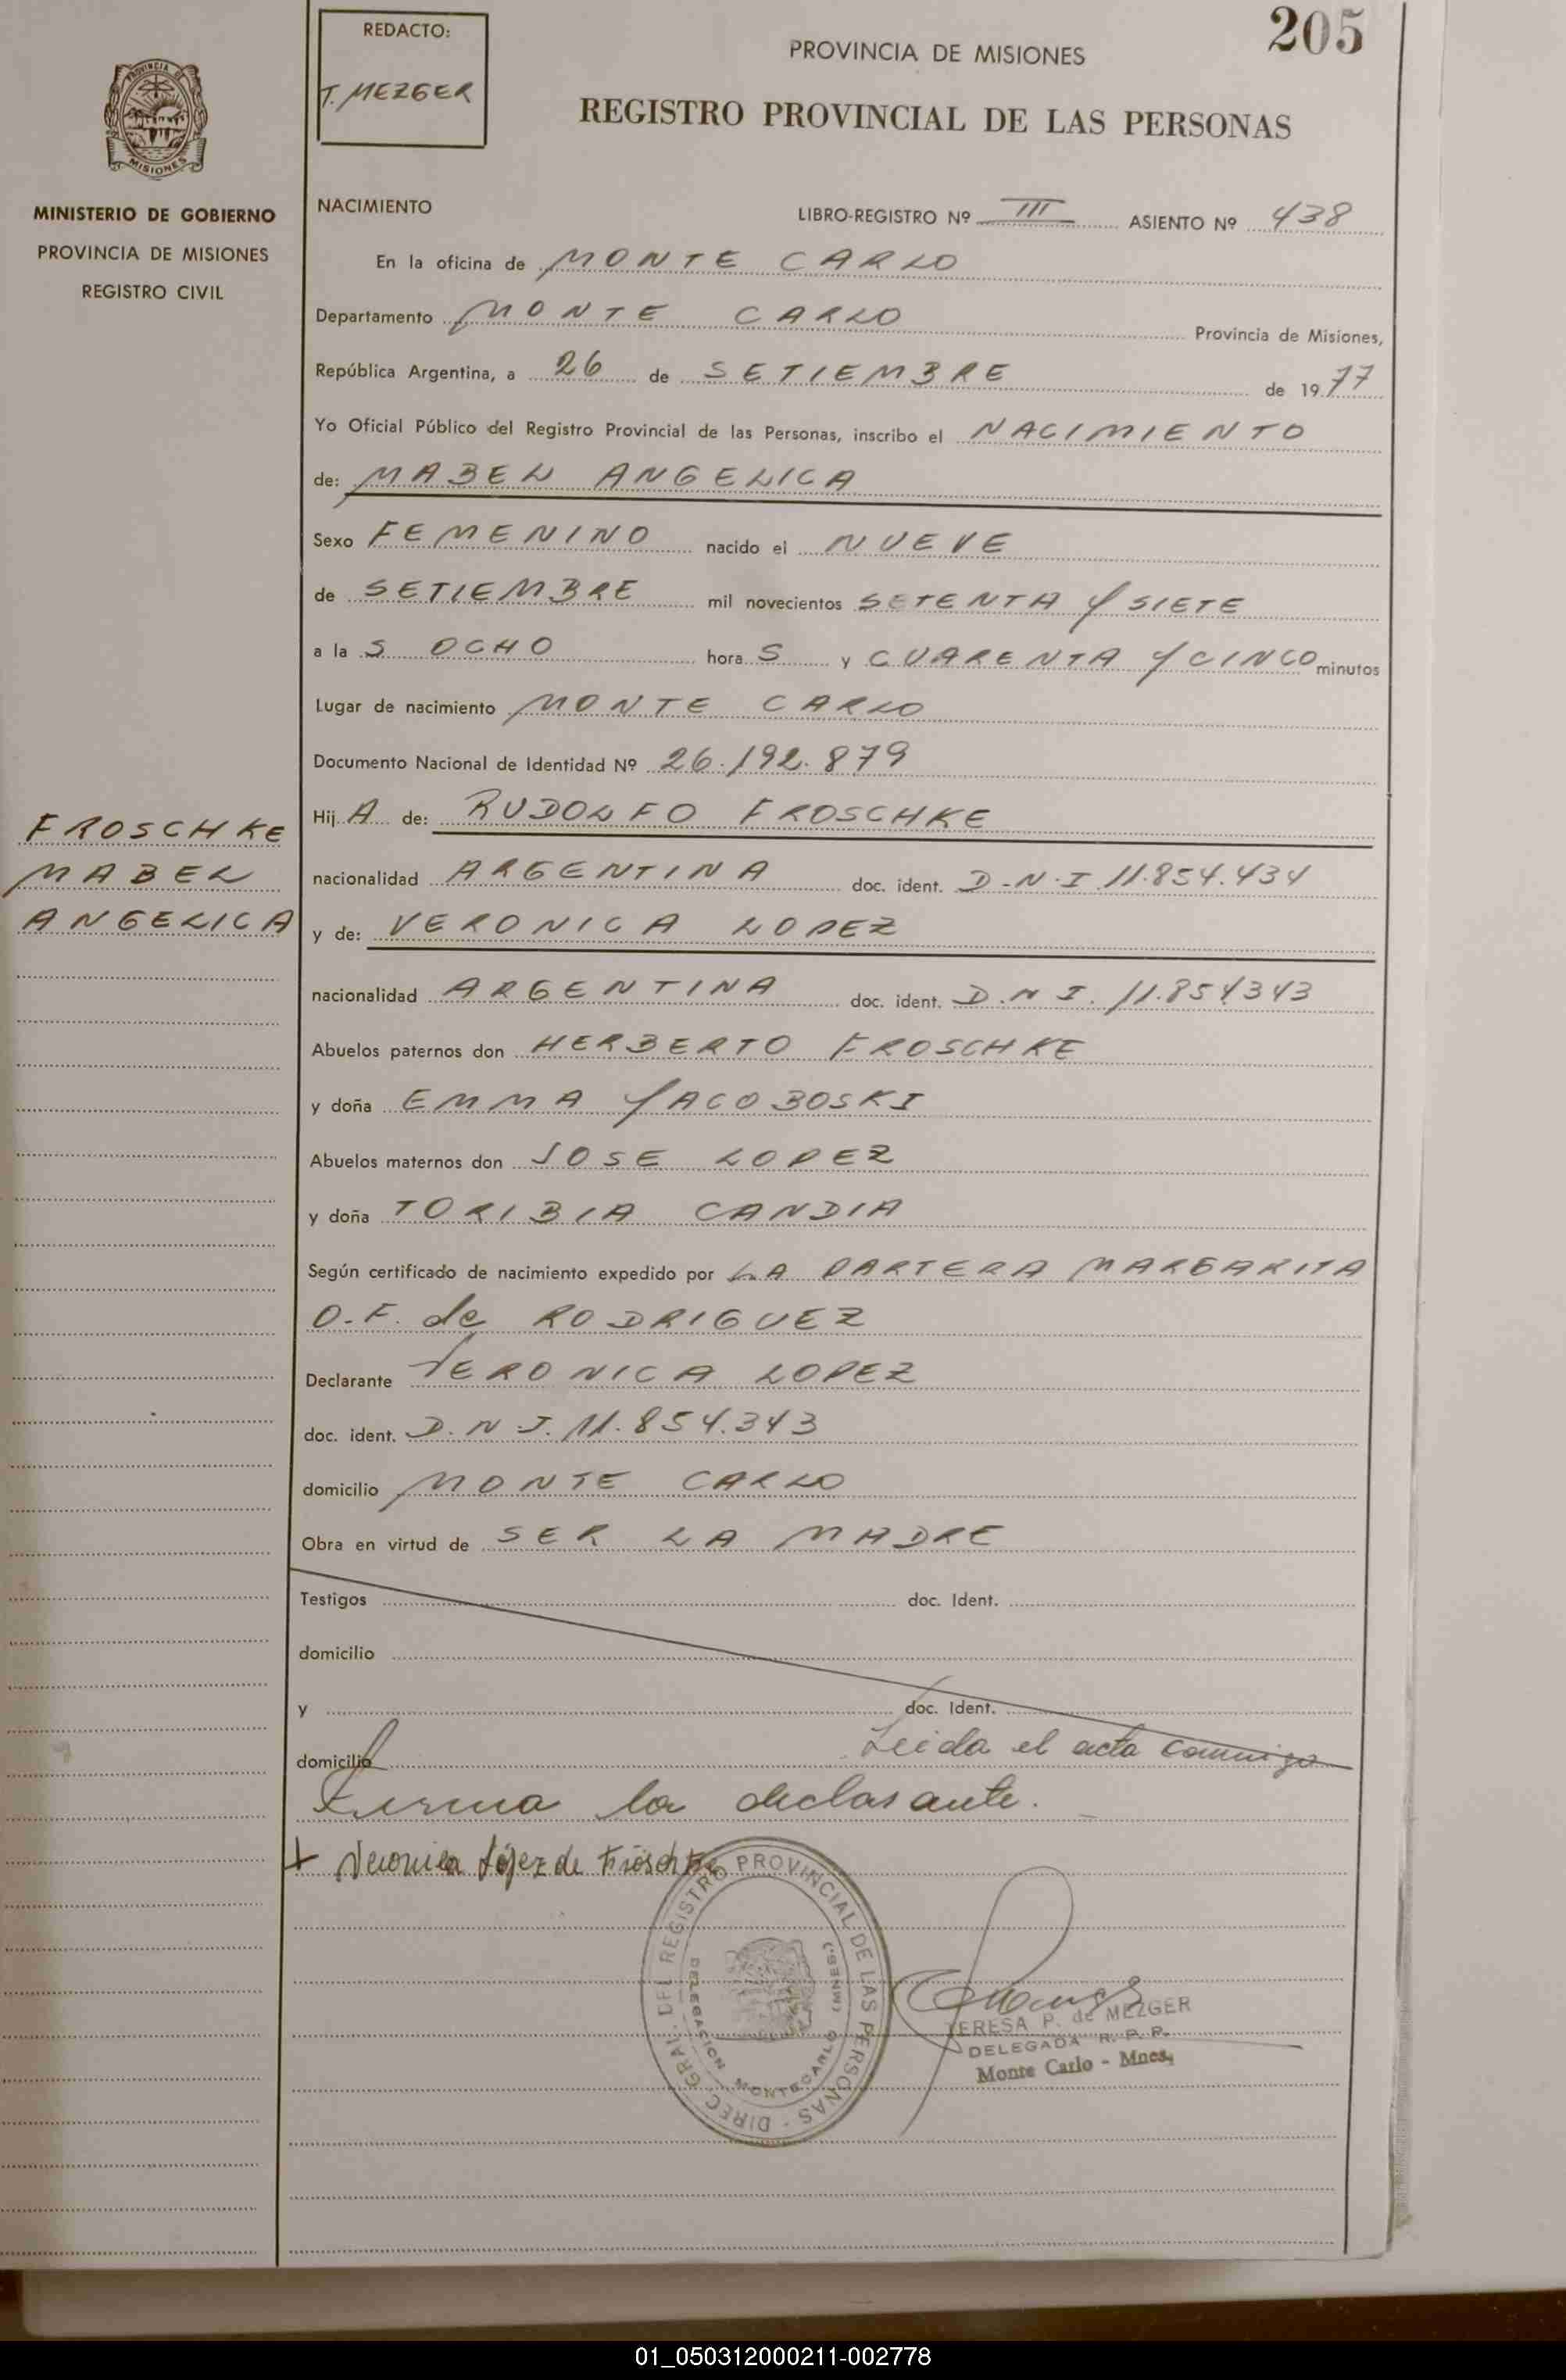 205
REDACTO:
T. MEZGER
PROVINCIA DE MISIONES
REGISTRO PROVINCIAL DE LAS PERSONAS
PROVINCIA DE
MISIONES
MINISTERIO DE GOBIERNO
PROVINCIA DE MISIONES
REGISTRO CIVIL
NACIMIENTO
LIBRO-REGISTRO Nº III ASIENTO Nº 438
En la oficina de MONTE CARLO
Departamento MONTE CARLO Provincia de Misiones,
República Argentina, a 26 de SETIEMBRE de 1977
Yo Oficial Público del Registro Provincial de las Personas, inscribo el NACIMIENTO
de: MABEL ANGELICA
Sexo FEMENINO nacido el NUEVE
de SETIEMBRE mil novecientos SETENTA Y SIETE
a la S OCHO hora S y CUARENTA Y CINCO minutos
Lugar de nacimiento MONTE CARLO
Documento Nacional de Identidad Nº 26.192.879
FROSCHKE
MABEL
ANGELICA
Hij A de: RUDOLFO FROSCHKE
nacionalidad ARGENTINA doc. ident. D-N.I 11.854.434
y de: VERONICA LOPEZ
nacionalidad ARGENTINA doc. ident. D.N I. 11.854343
Abuelos paternos don HERBERTO FROSCHKE
y doña EMMA YACOBOSKI
Abuelos maternos don JOSE LOPEZ
y doña TORIBIA CANDIA
Según certificado de nacimiento expedido por LA PARTERA MARGARITA
O.F. de RODRIGUEZ
Declarante VERONICA LOPEZ
doc. ident. D.N.I. 11.854.343
domicilio MONTE CARLO
Obra en virtud de SER LA MADRE
Testigos doc. Ident.
domicilio
y doc. Ident.
domicilio Leida el acta conmigo
Firma la declarante.
+ Veronica López de Fröschke
DIREC. GRAL. DEL REGISTRO PROVINCIAL DE LAS PERSONAS
DELEGACION MONTECARLO (MNES.)
TERESA P. de MEZGER
DELEGADA R. P. P.
Monte Carlo - Mnes.
01_050312000211-002778